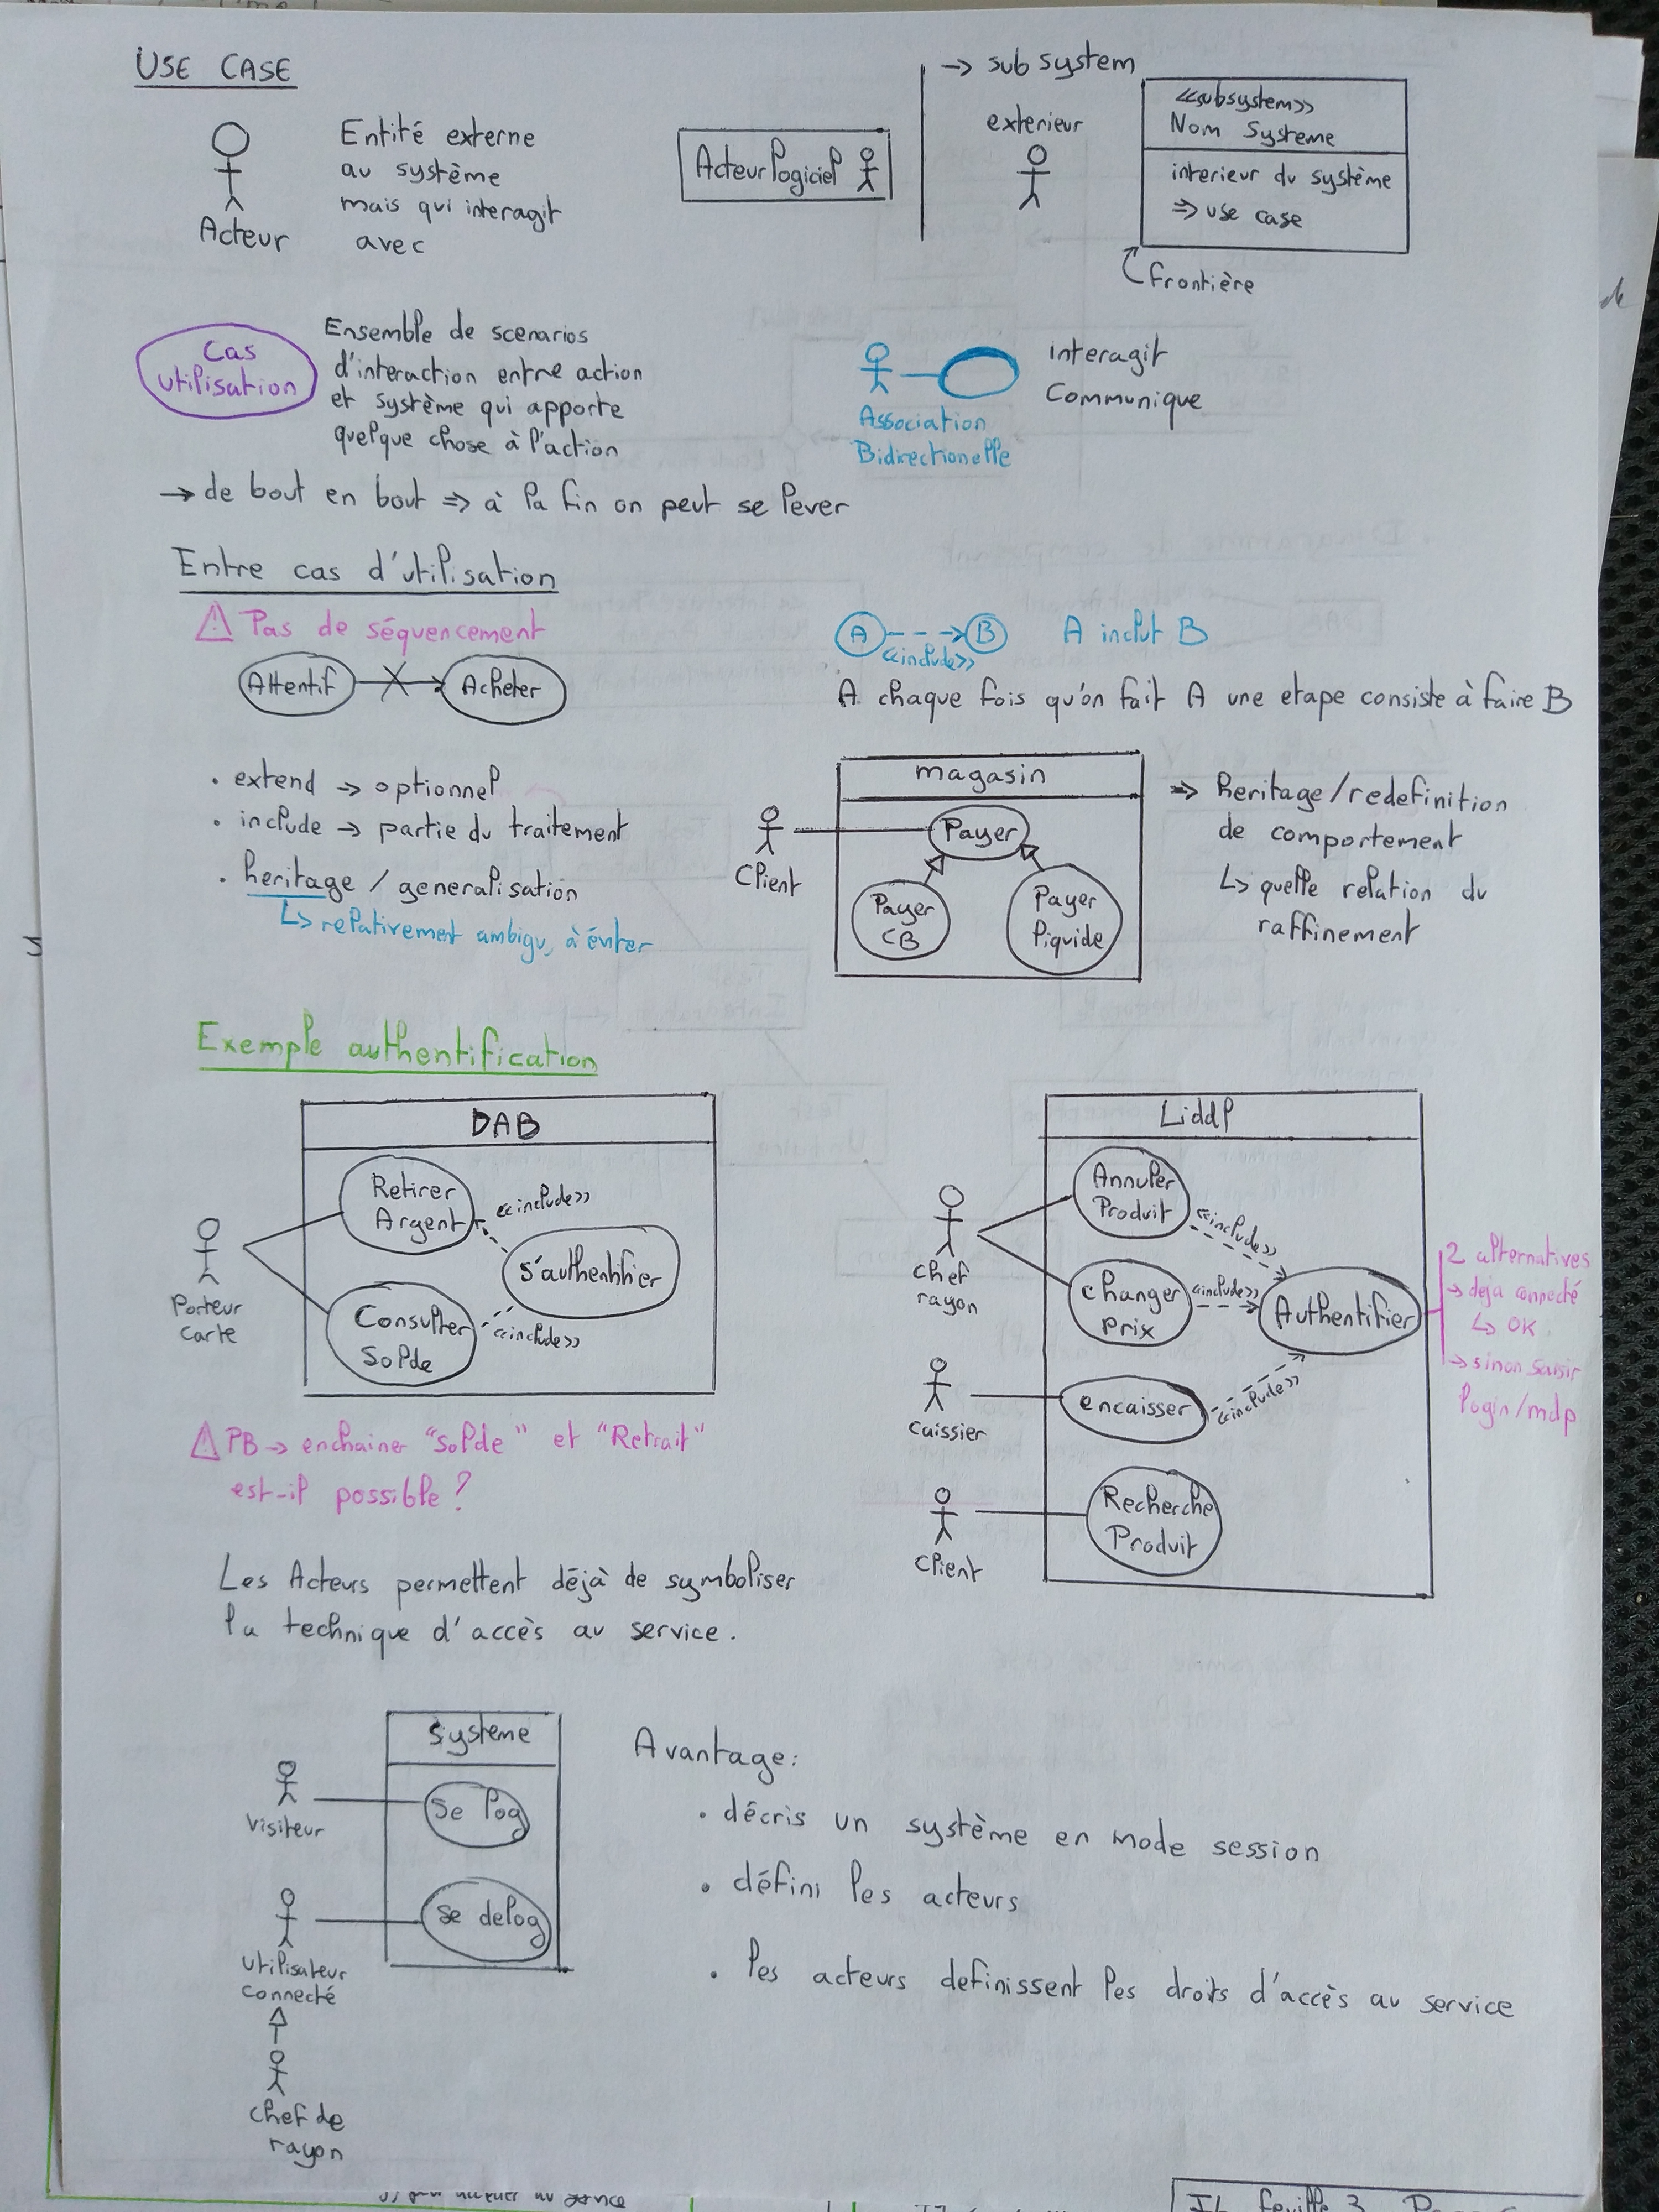 USE CASE
Acteur
Entité externe
au système
mais qui interagit
avec
Acteur logiciel
→ sub system
exterieur
<<subsystem>>
Nom Systeme
interieur du système
⇒ use case
frontière
Cas
utilisation
Ensemble de scenarios
d'interaction entre action
et système qui apporte
quelque chose à l'action
Association
Bidirectionelle
interagit
Communique
→ de bout en bout ⇒ à la fin on peut se lever
Entre cas d'utilisation
⚠ Pas de séquencement
Attentif
Acheter
A
B
<<include>>
A inclut B
A chaque fois qu'on fait A une etape consiste à faire B
. extend → optionnel
. include → partie du traitement
. heritage / generalisation
↳ relativement ambigu, à éviter
magasin
Client
Payer
Payer
CB
Payer
liquide
⇒ heritage/redefinition
de comportement
↳ quelle relation du
raffinement
Exemple authentification
DAB
Porteur
carte
Retirer
Argent
<<include>>
s'authentifier
Consulter
Solde
<<include>>
⚠ PB → enchainer "Solde" et "Retrait"
est-il possible ?
Liddl
chef
rayon
Annuler
Produit
<<include>>
changer
prix
<<include>>
Authentifier
caissier
encaisser
<<include>>
client
Recherche
Produit
2 alternatives
→ deja connecté
↳ OK
→ sinon saisir
login/mdp
Les Acteurs permettent déjà de symboliser
la technique d'accès au service.
système
visiteur
se log
utilisateur
connecté
se delog
chef de
rayon
Avantage:
. décris un système en mode session
. défini les acteurs
. les acteurs definissent les droits d'accès au service